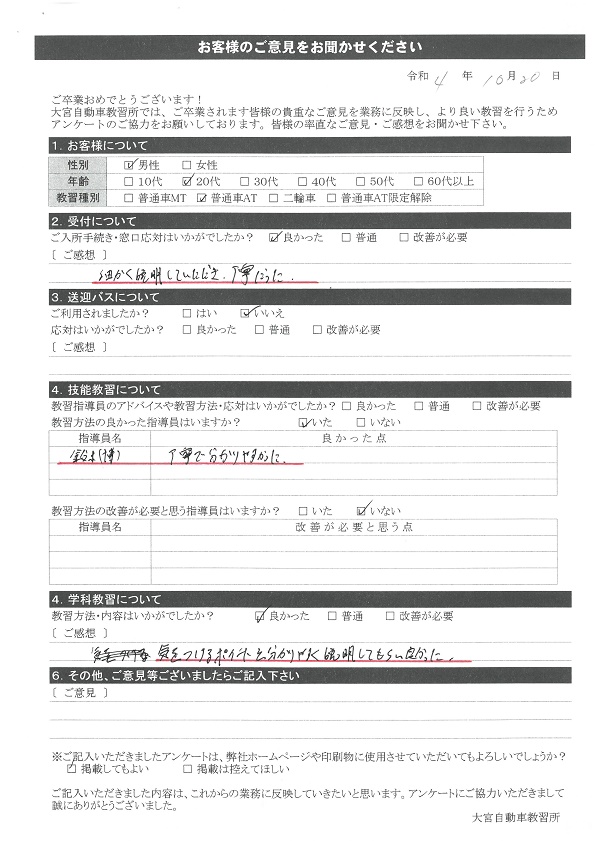 お客様のご意見をお聞かせください
令和 4 年 10 月 20 日
ご卒業おめでとうございます!
大宮自動車教習所では、ご卒業されます皆様の貴重なご意見を業務に反映し、より良い教習を行うため
アンケートのご協力をお願いしております。皆様の率直なご意見・ご感想をお聞かせ下さい。
1. お客様について
性別 ☑男性 □女性
年齢 □10代 ☑20代 □30代 □40代 □50代 □60代以上
教習種別 □普通車MT ☑普通車AT □二輪車 □普通車AT限定解除
2. 受付について
ご入所手続き・窓口応対はいかがでしたか? ☑良かった □普通 □改善が必要
〔 ご感想 〕
細かく説明していただき、丁寧だった。
3. 送迎バスについて
ご利用されましたか? □はい ☑いいえ
応対はいかがでしたか? □良かった □普通 □改善が必要
〔 ご感想 〕
4. 技能教習について
教習指導員のアドバイスや教習方法・応対はいかがでしたか? □良かった □普通 □改善が必要
教習方法の良かった指導員はいますか? ☑いた □いない
指導員名 良かった点
鈴木(博) 丁寧で分かりやすかった。
教習方法の改善が必要と思う指導員はいますか? □いた ☑いない
指導員名 改善が必要と思う点
4. 学科教習について
教習方法・内容はいかがでしたか? ☑良かった □普通 □改善が必要
〔 ご感想 〕
気をつけるポイントを分かりやすく説明してもらい良かった。
6. その他、ご意見等ございましたらご記入下さい
〔 ご意見 〕
※ご記入いただきましたアンケートは、弊社ホームページや印刷物に使用させていただいてもよろしいでしょうか?
☑掲載してもよい □掲載は控えてほしい
ご記入いただきました内容は、これからの業務に反映していきたいと思います。アンケートにご協力いただきまして
誠にありがとうございました。
大宮自動車教習所